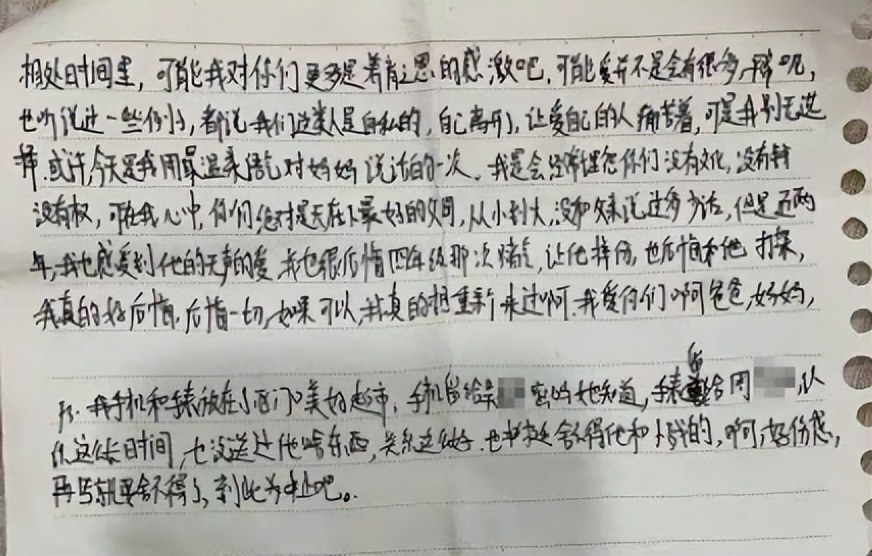 相处时间里，可能我对你们更多是养育之恩的感激吧，可能爱并不是会有很多，
也听说过一些例子，都说我们这类人是自私的，自己离开了，让爱自己的人痛苦着，可是我别无选
择.或许，今天是我用最温柔语气对妈妈说话的一次，我是会经常埋怨你们没有文化，没有钱
没有权，可在我心中，你们绝对是天底下最好的父母，从小到大，没和父亲说过多少话，但是近两
年，我也感受到他的无声的爱，我也很后悔四年级那次赌气，让他摔伤，也后悔和他打架，
我真的好后悔，后悔一切，如果可以，我真的想重新来过啊.我爱你们啊爸爸，妈妈，
Ps.我手机和手表放在小西门口美好超市，手机留给吴 密码她知道，手表留给周 ，认
识这么长时间，也没送过他啥东西，关系这么好.也舍不得他和 的，啊，好伤感，
再写就更舍不得了，到此为止吧。